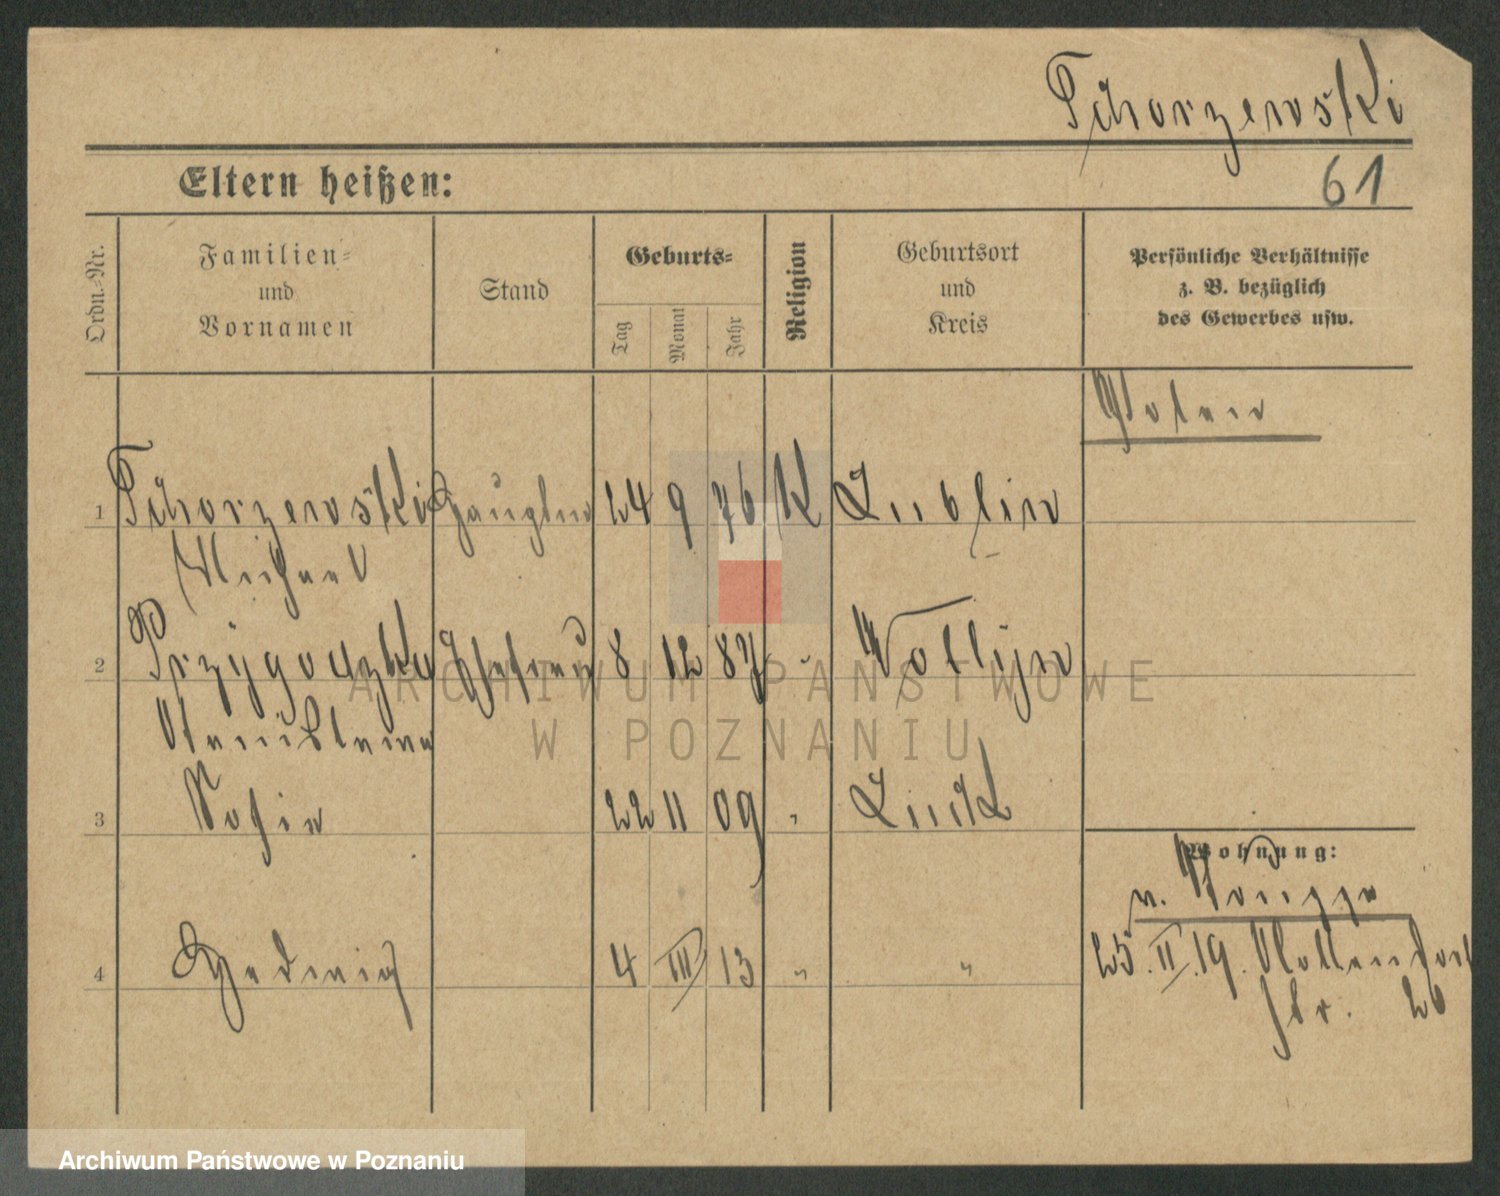 Tchorzewski
Eltern heißen:
61
Ordn.-Nr.
Familien-
und
Vornamen
Stand
Geburts-
Tag
Monat
Jahr
Religion
Geburtsort
und
Kreis
Persönliche Verhältnisse
z. B. bezüglich
des Gewerbes usw.
Polen
1 Tchorzewski 24 9 76 K Lublin
Michael
2 Przygodzka Ehefrau 8 12 87 "
Stanislawa
3 Sofie 22 11 09 "
Wohnung:
v.
4 Hedwig 4 III 13 " "
25. II. 19.
str. 26
ARCHIWUM PAŃSTWOWE
W POZNANIU
Archiwum Państwowe w Poznaniu